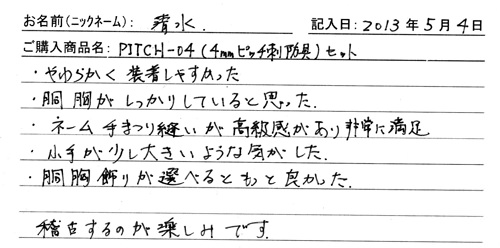 お名前(ニックネーム): 清水 記入日: 2013年5月4日
ご購入商品名: PITCH-04(4mmピッチ刺防具)セット
・やわらかく装着しやすかった
・胴胸がしっかりしていると思った.
・ネーム手まつり縫いが高級感があり非常に満足
・小手が少し大きいような気がした.
・胴胸飾りが選べるともっと良かった.
稽古するのが楽しみです.